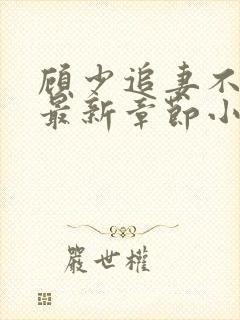 顾少追妻不
最新章节小
严世权